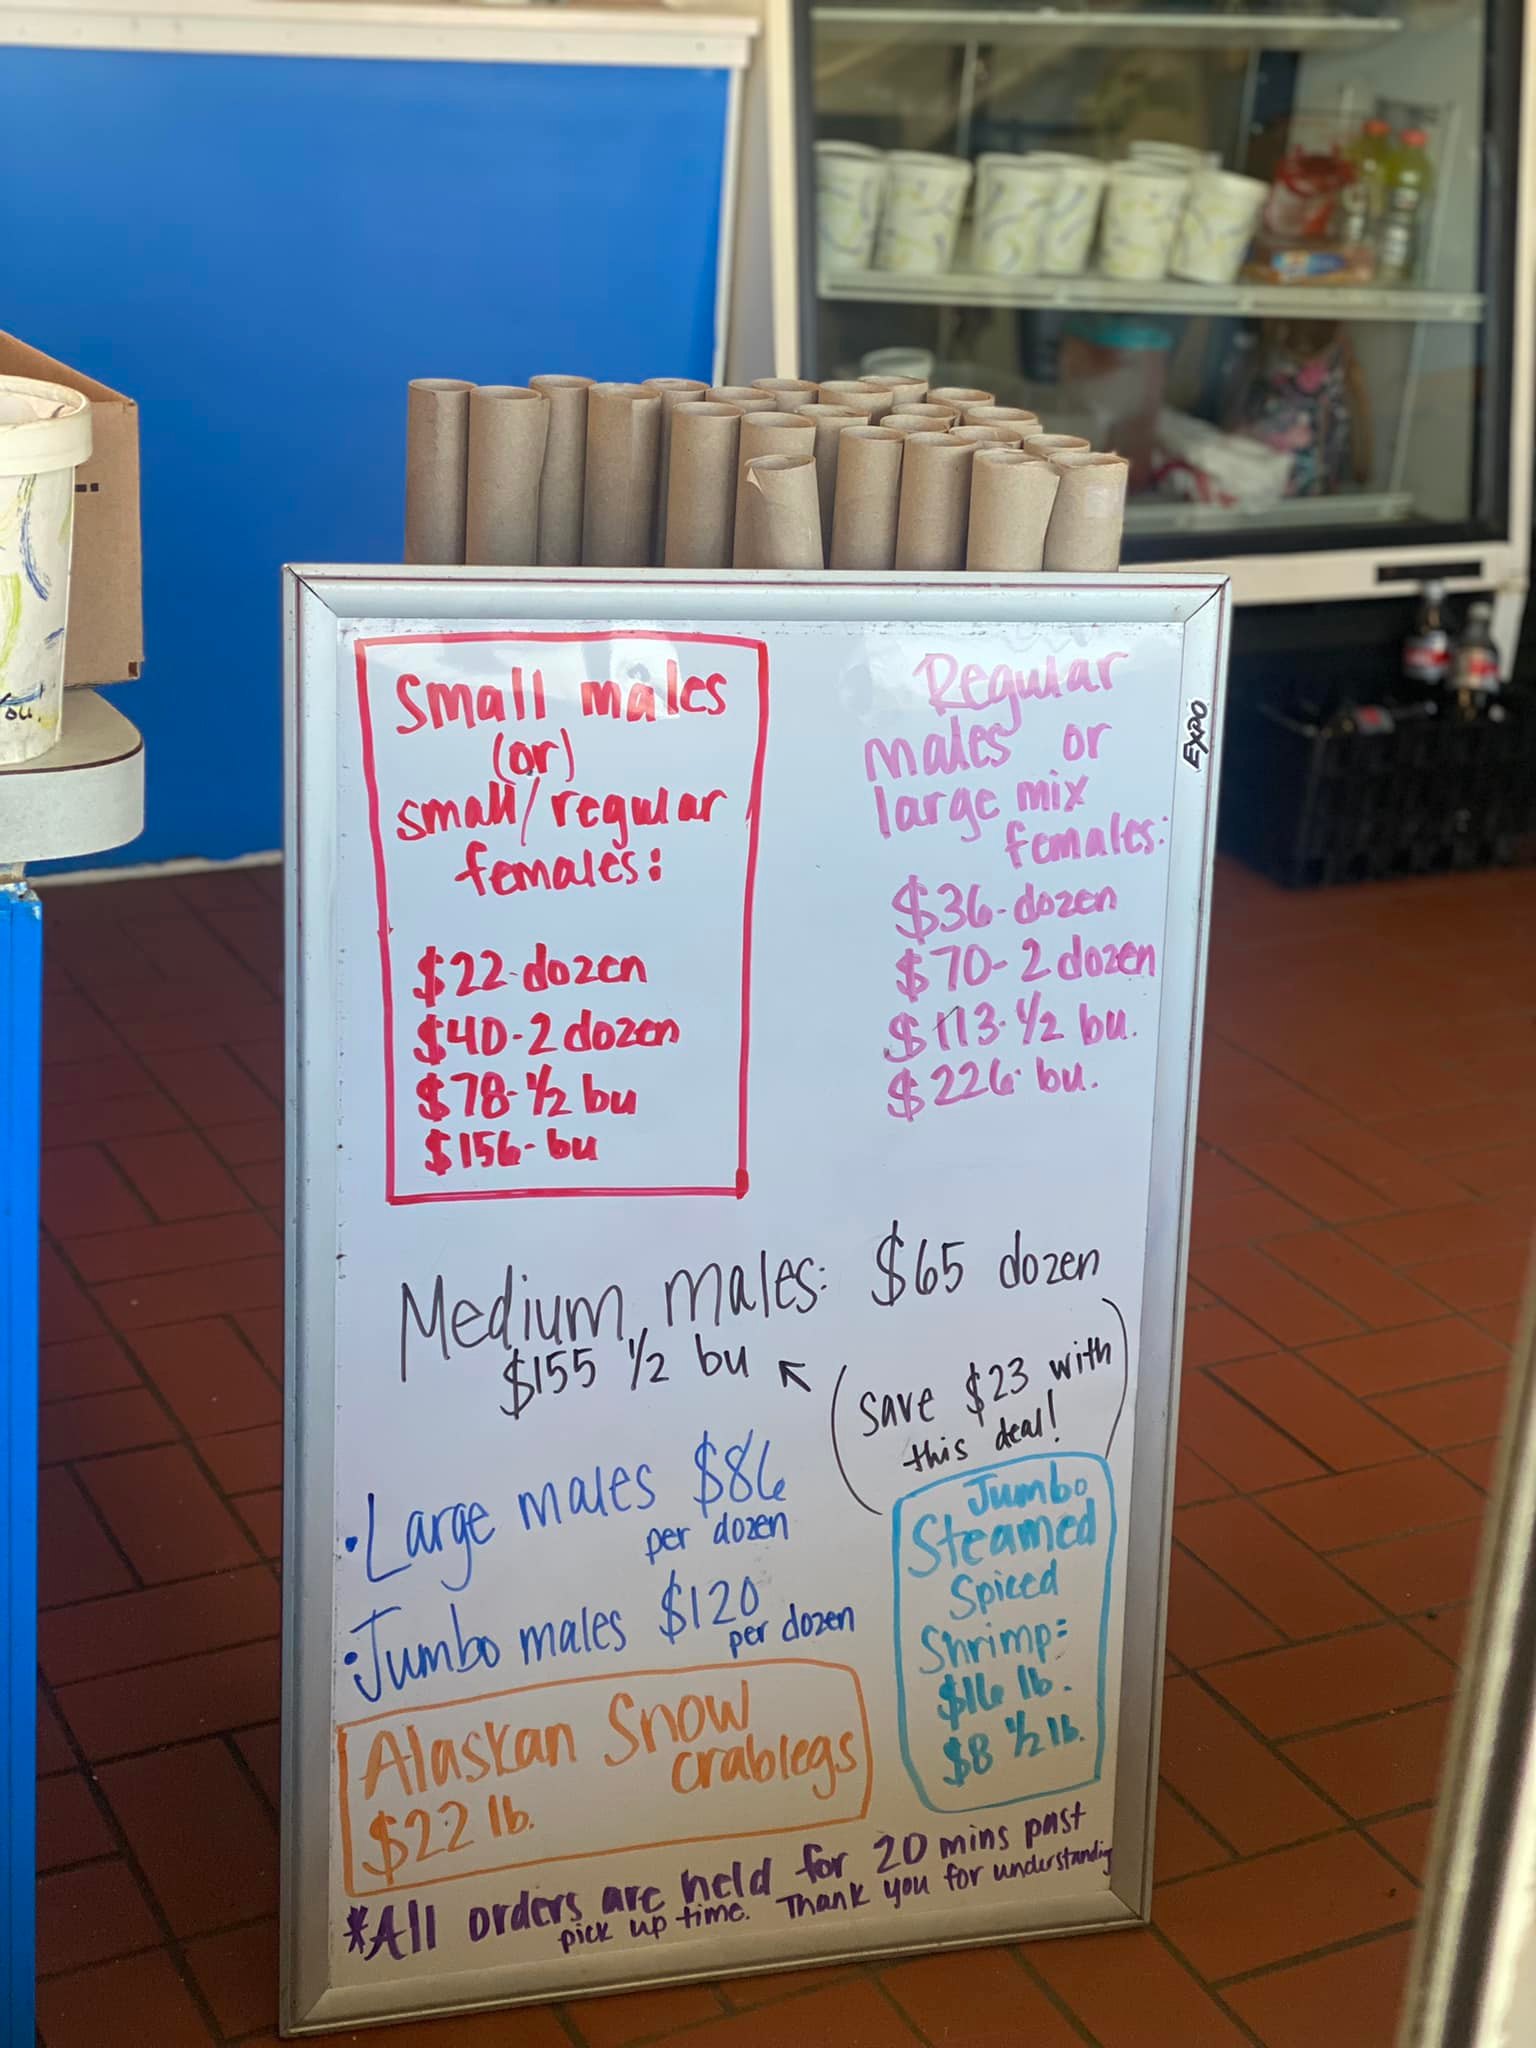 Small males
(or)
small/regular
females:
$22-dozen
$40-2 dozen
$78-1/2 bu
$156-bu
Regular
males or
large mix
females:
$36-dozen
$70-2 dozen
$113-1/2 bu.
$226-bu.
EXPO
Medium males: $65 dozen
$155 1/2 bu ↖
(save $23 with
this deal!)
• Large males $86
per dozen
• Jumbo males $120
per dozen
Jumbo
Steamed
Spiced
Shrimp=
$16 lb.
$8 1/2 lb.
Alaskan Snow
crablegs
$22 lb.
*All orders are held for 20 mins past
pick up time. Thank you for understanding